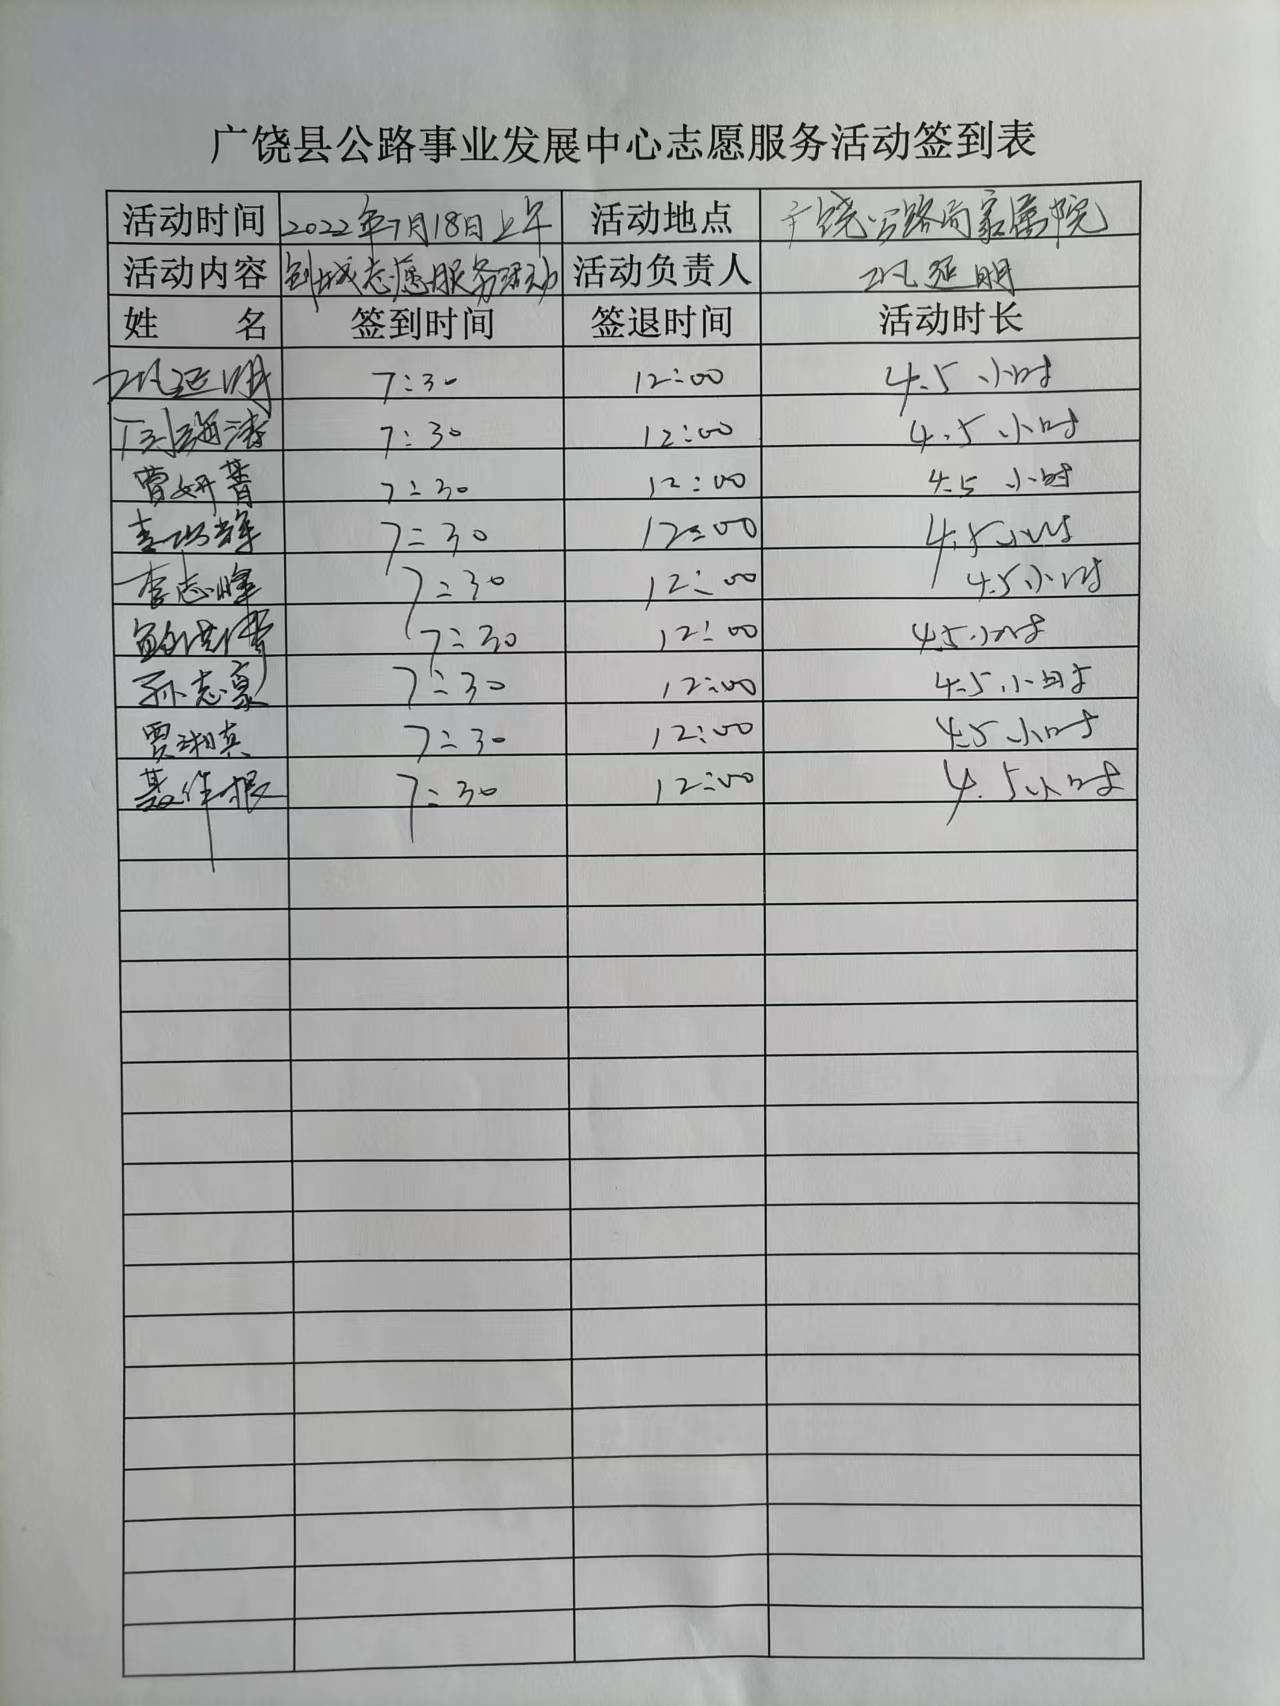 广饶县公路事业发展中心志愿服务活动签到表
活动时间 2022年7月18日上午 活动地点 广饶公路局家属院
活动内容 创城志愿服务活动 活动负责人 巩延明
姓 名 签到时间 签退时间 活动时长
巩延明 7:30 12:00 4.5小时
7:30 12:00 4.5小时
曹妍菁 7:30 12:00 4.5小时
7:30 12:00 4.5小时
李志峰 7:30 12:00 4.5小时
7:30 12:00 4.5小时
孙志豪 7:30 12:00 4.5小时
贾湘真 7:30 12:00 4.5小时
聂作根 7:30 12:00 4.5小时